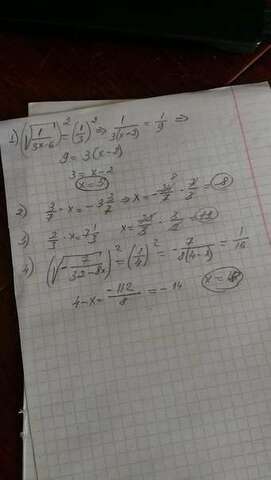 1) (√(1/(3x-6)))² = (1/3)² ⇒ 1/(3(x-2)) = 1/9 ⇒
9 = 3(x-2)
3 = x-2
x = 5
2) 3/7 · x = -3 3/7 ⇒ x = -24/7 · 7/3 = -8
3) 2/3 · x = 7 1/3 x =
4) (√(-7/(32-8x)))² = (1/4)² = -7/(8(4-x)) = 1/16
4-x = -112/8 = -14